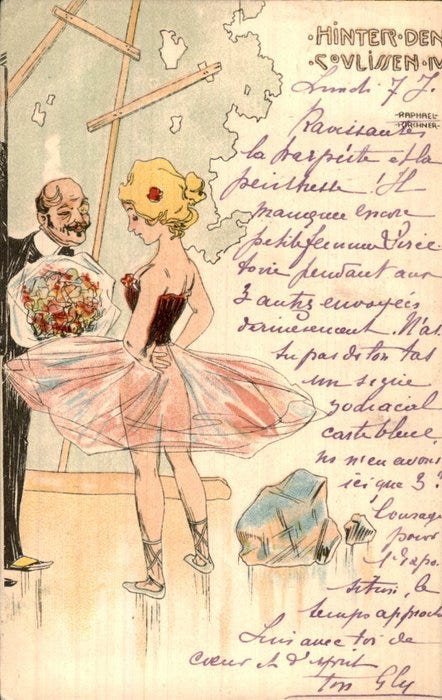 ·HINTER·DEN
·COVLISSEN·IV
RAPHAEL
KIRCHNER
Lundi 7 J.
Ravissantes
la trapéiste et la
peintresse! Il
manque encore
petite femme
pendant aux
3 autres envoyées
dernièrement. N'as
tu pas de ton tas
un signe
zodiacal
carte bleue,
ns n'en avons
ici que 3?
Courage
pour
l'expo
sition, le
temps approche
Suis avec toi de
cœur et d'esprit
ton Gly